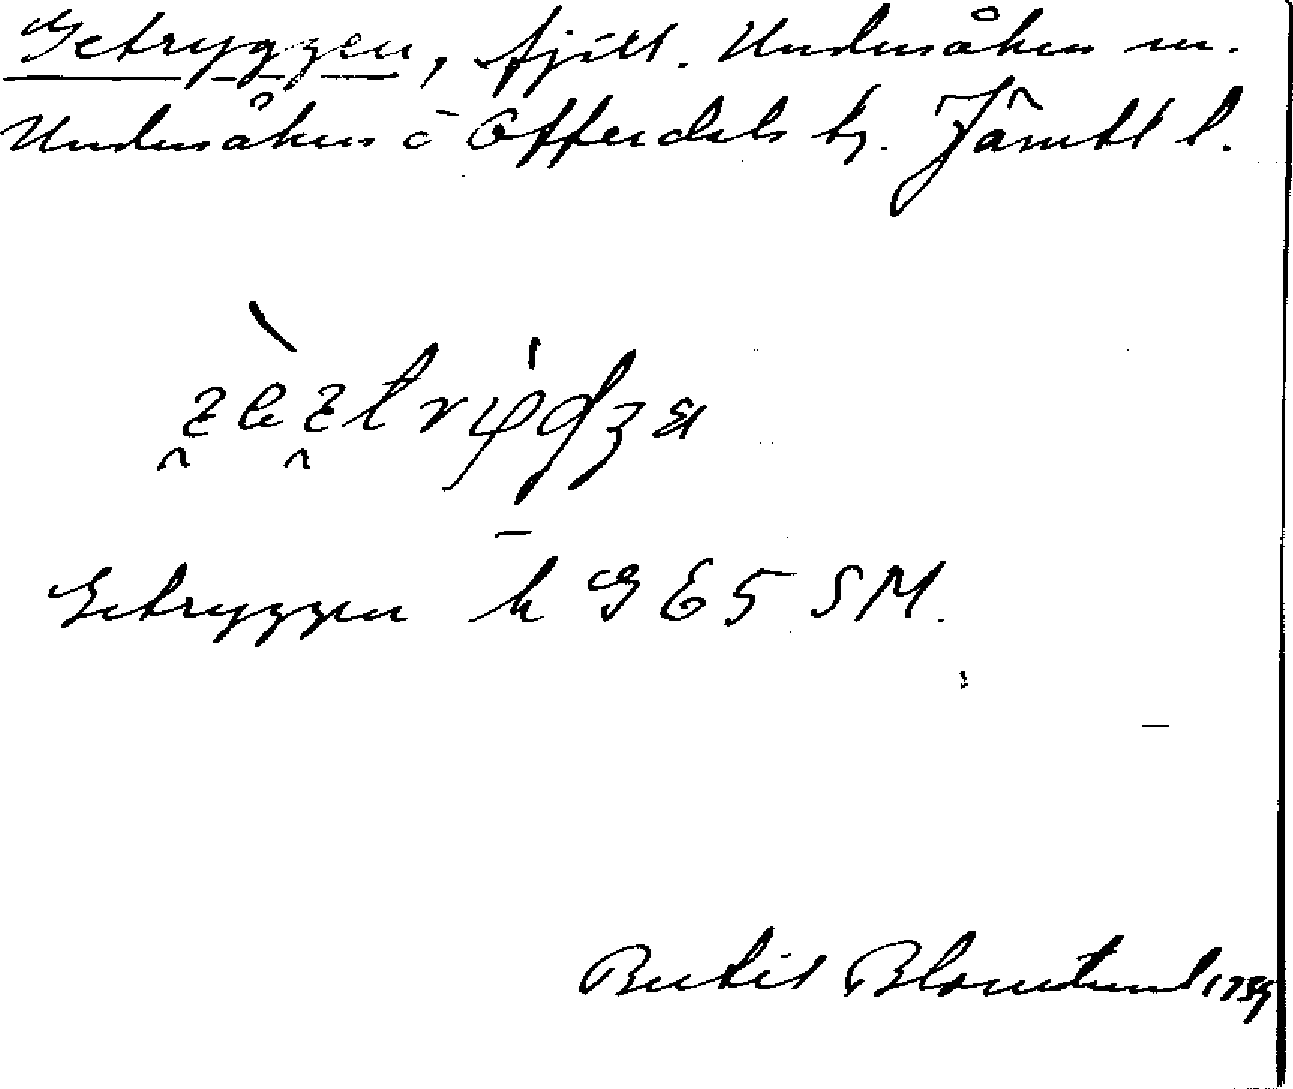 Getryggen, fjäll. Undersåkers sn.
Undersåkers o Offerdals tg. Jämtl l.
Getryggen k G E 5 S M.
Bertil Blomstrand 1939